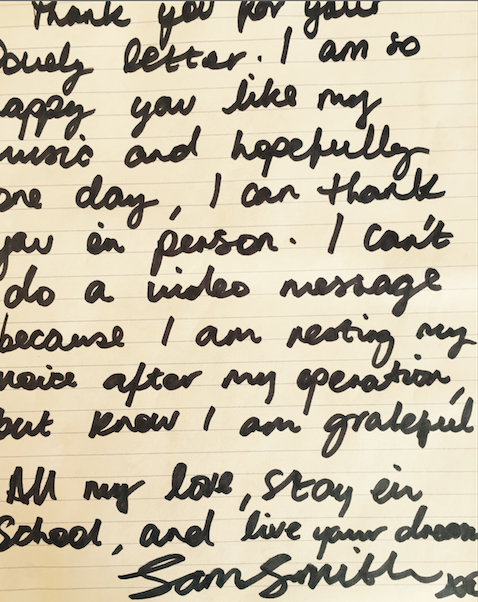 Thank you for your
lovely letter. I am so
happy you like my
music and hopefully
one day, I can thank
you in person. I can't
do a video message
because I am resting my
voice after my operation,
but know I am grateful
All my love, stay in
School, and live your dream
Sam Smith xx